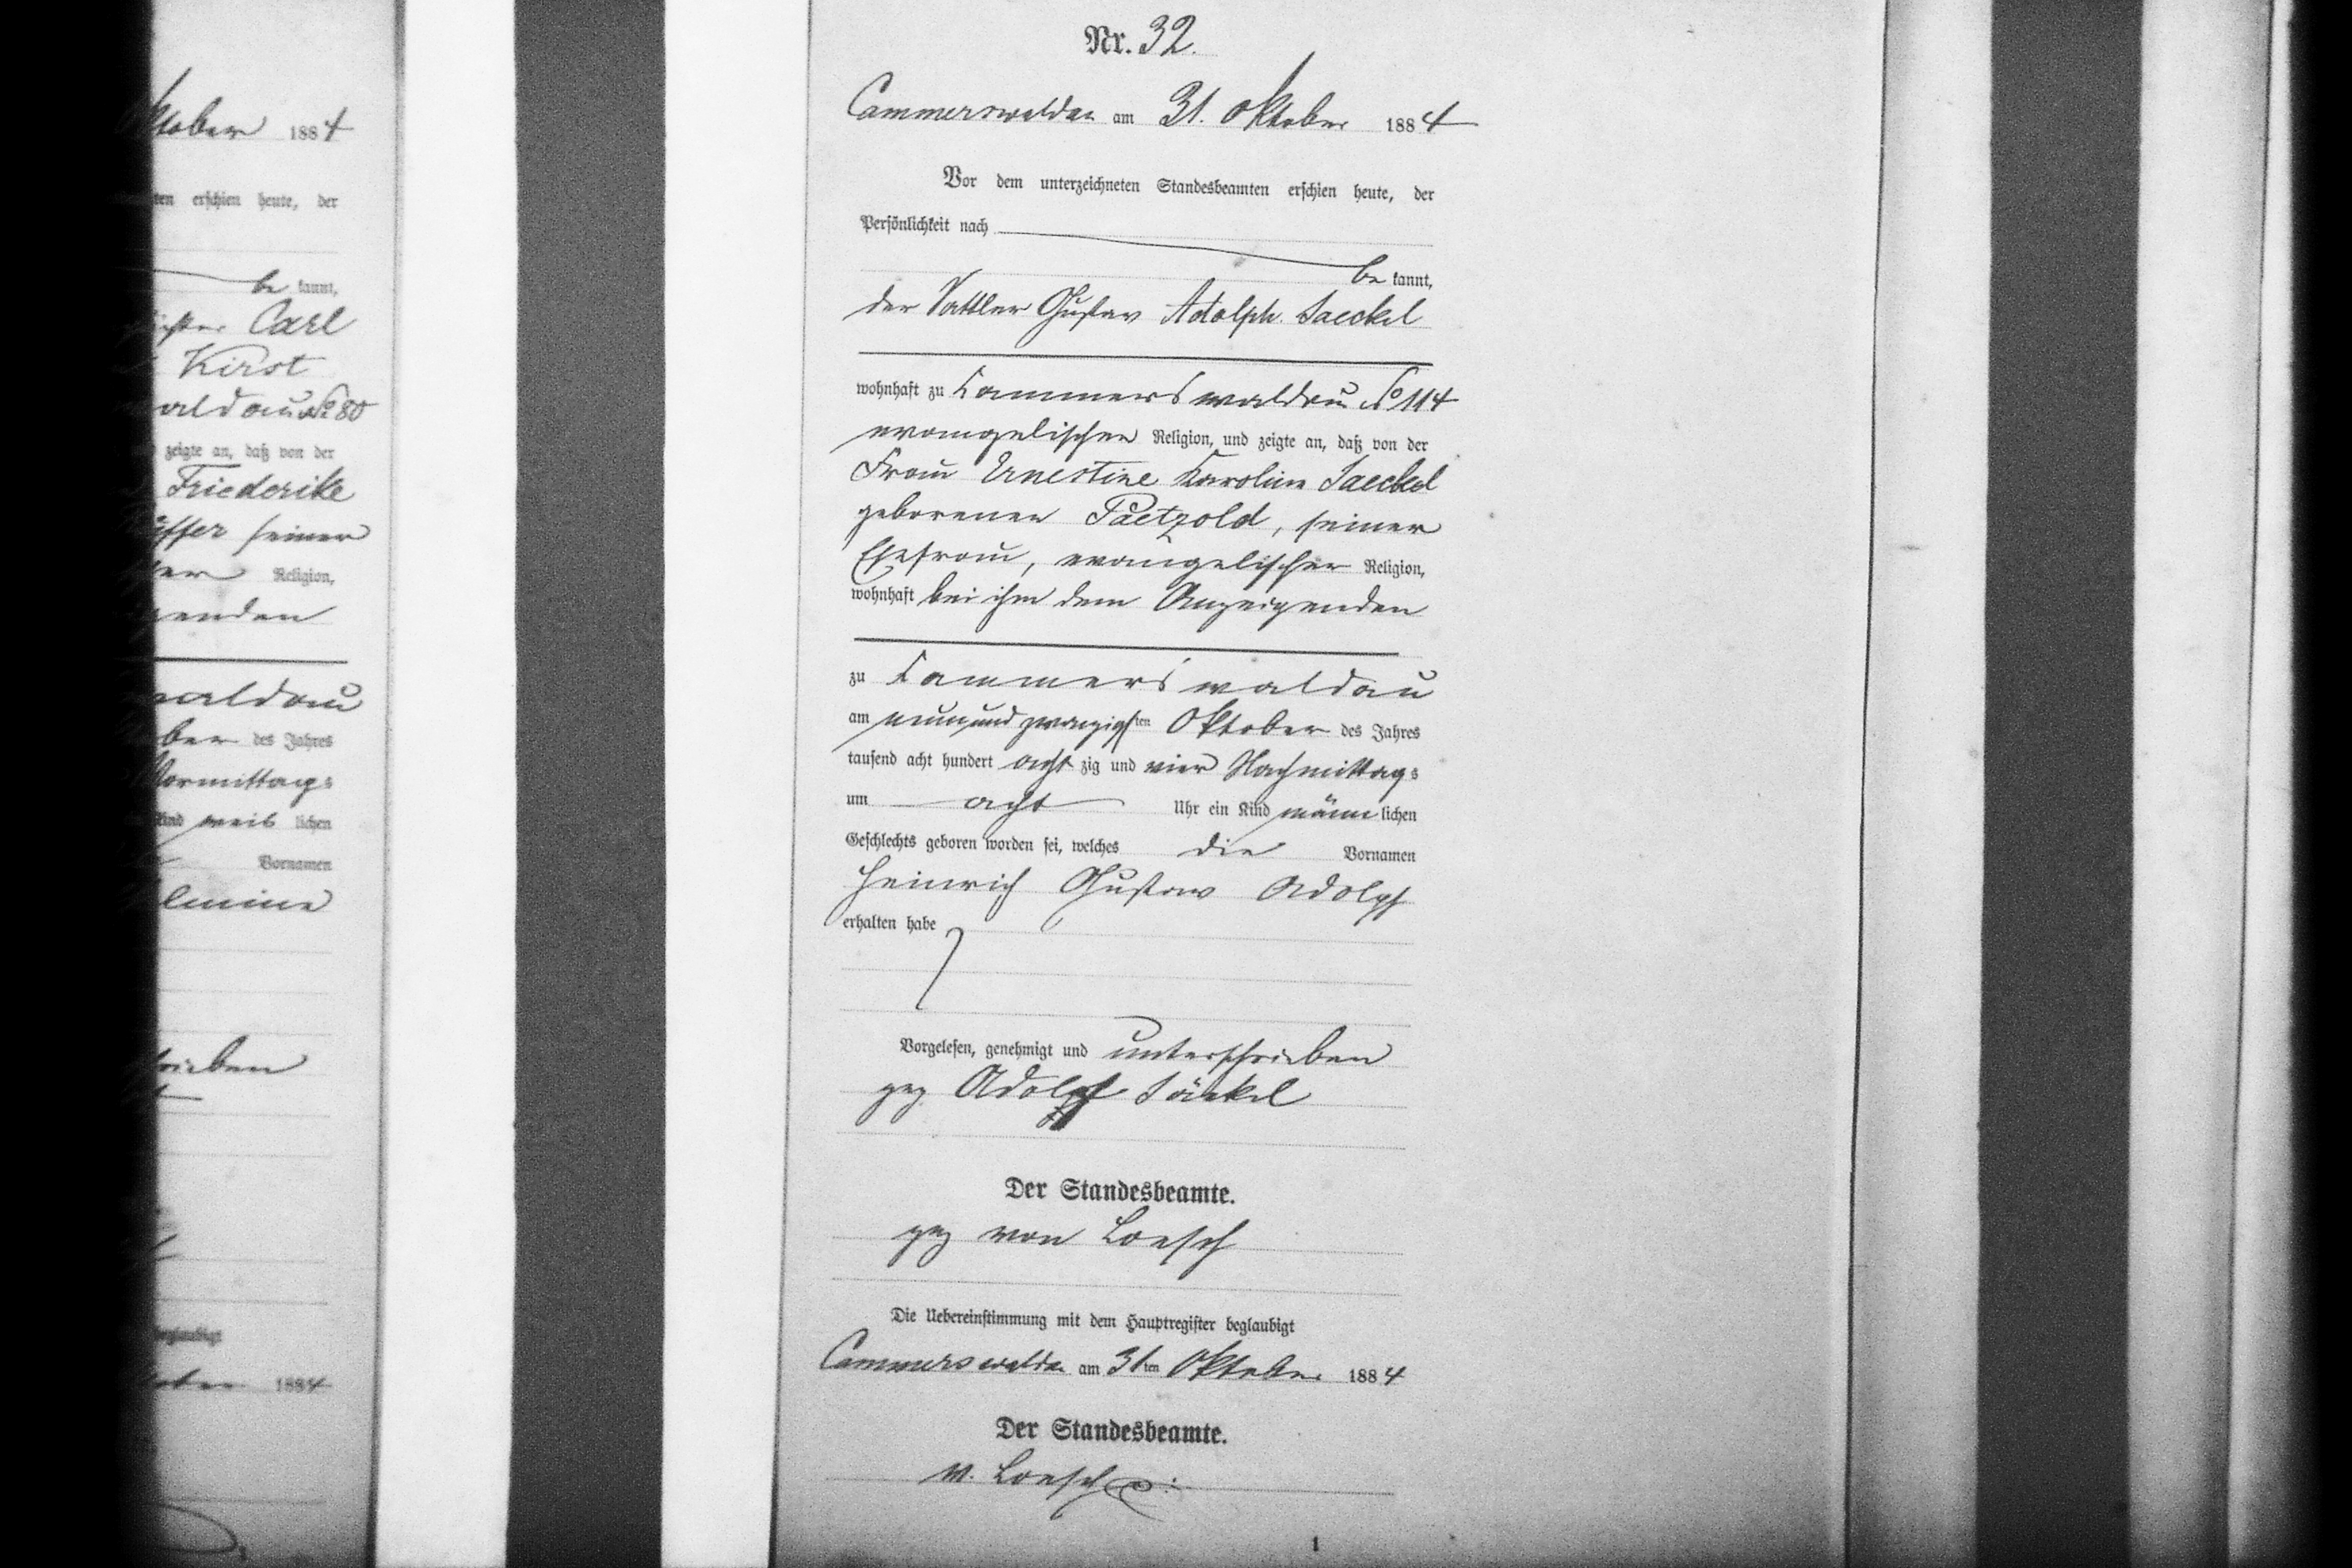 ktober 1884
ten erschien heute, der
be kannt,
Carl
Kirst
waldau No 80
zeigte an, daß von der
Friederike
seiner
Religion,
genden
waldau
ber des Jahres
Vormittags
Kind weib lichen
Vornamen
lmine
rieben
beglaubigt
1884
Nr. 32.
Cammerswaldau am 31. Oktober 1884
Vor dem unterzeichneten Standesbeamten erschien heute, der
Persönlichkeit nach
be kannt,
der Sattler Gustav Adolph Jaeckel
wohnhaft zu Cammerswaldau No 114
evangelischer Religion, und zeigte an, daß von der
Frau Ernestine Karoline Jaeckel
geborenen Paetzold, seiner
Ehefrau, evangelischer Religion,
wohnhaft bei ihm dem Anzeigenden
zu Cammerswaldau
am neunundzwanzigsten Oktober des Jahres
tausend acht hundert acht zig und vier Nachmittags
um acht Uhr ein Kind männ lichen
Geschlechts geboren worden sei, welches die Vornamen
Heinrich Gustav Adolph
erhalten habe
Vorgelesen, genehmigt und unterschrieben
gez Adolph Jäckel
Der Standesbeamte.
gez von Loesch
Die Uebereinstimmung mit dem Hauptregister beglaubigt
Cammerswaldau am 31ten Oktober 1884
Der Standesbeamte.
v. Loesch
1